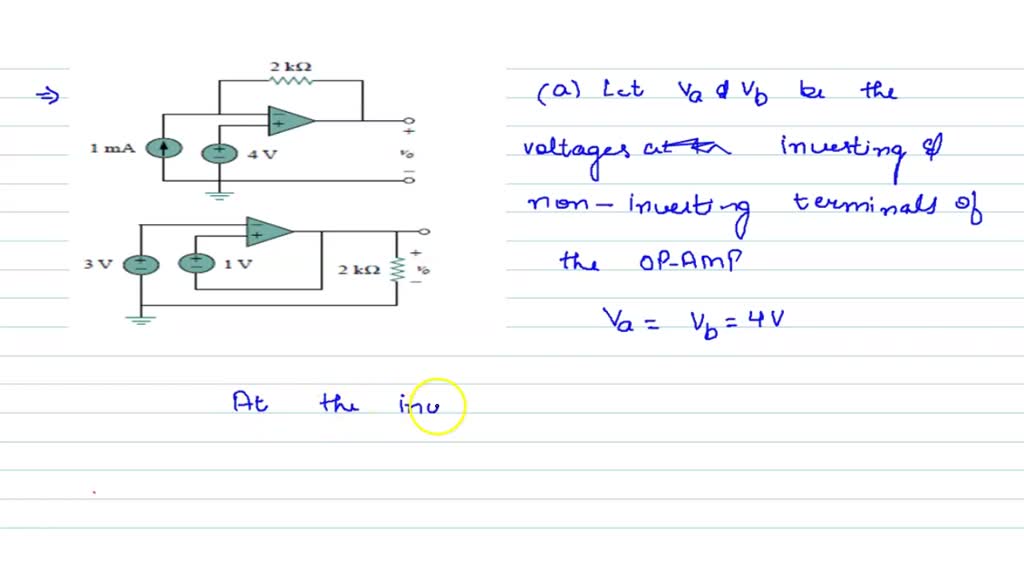 2 kΩ
1 mA
4 V
+
vo
−
3 V
1 V
2 kΩ
+
vo
−
⇒ (a) Let Va & Vb be the
voltages at inverting &
non-inverting terminals of
the OP-AMP
Va = Vb = 4V
At the inv